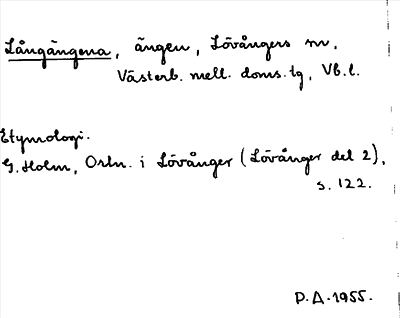 Långängena, ängen, Lövångers sn.
Västerb. mell. doms.tg, Vb.l.
Etymologi.
G. Holm, Ortn. i Lövånger (Lövånger del 2),
s. 122.
P.A. 1955.